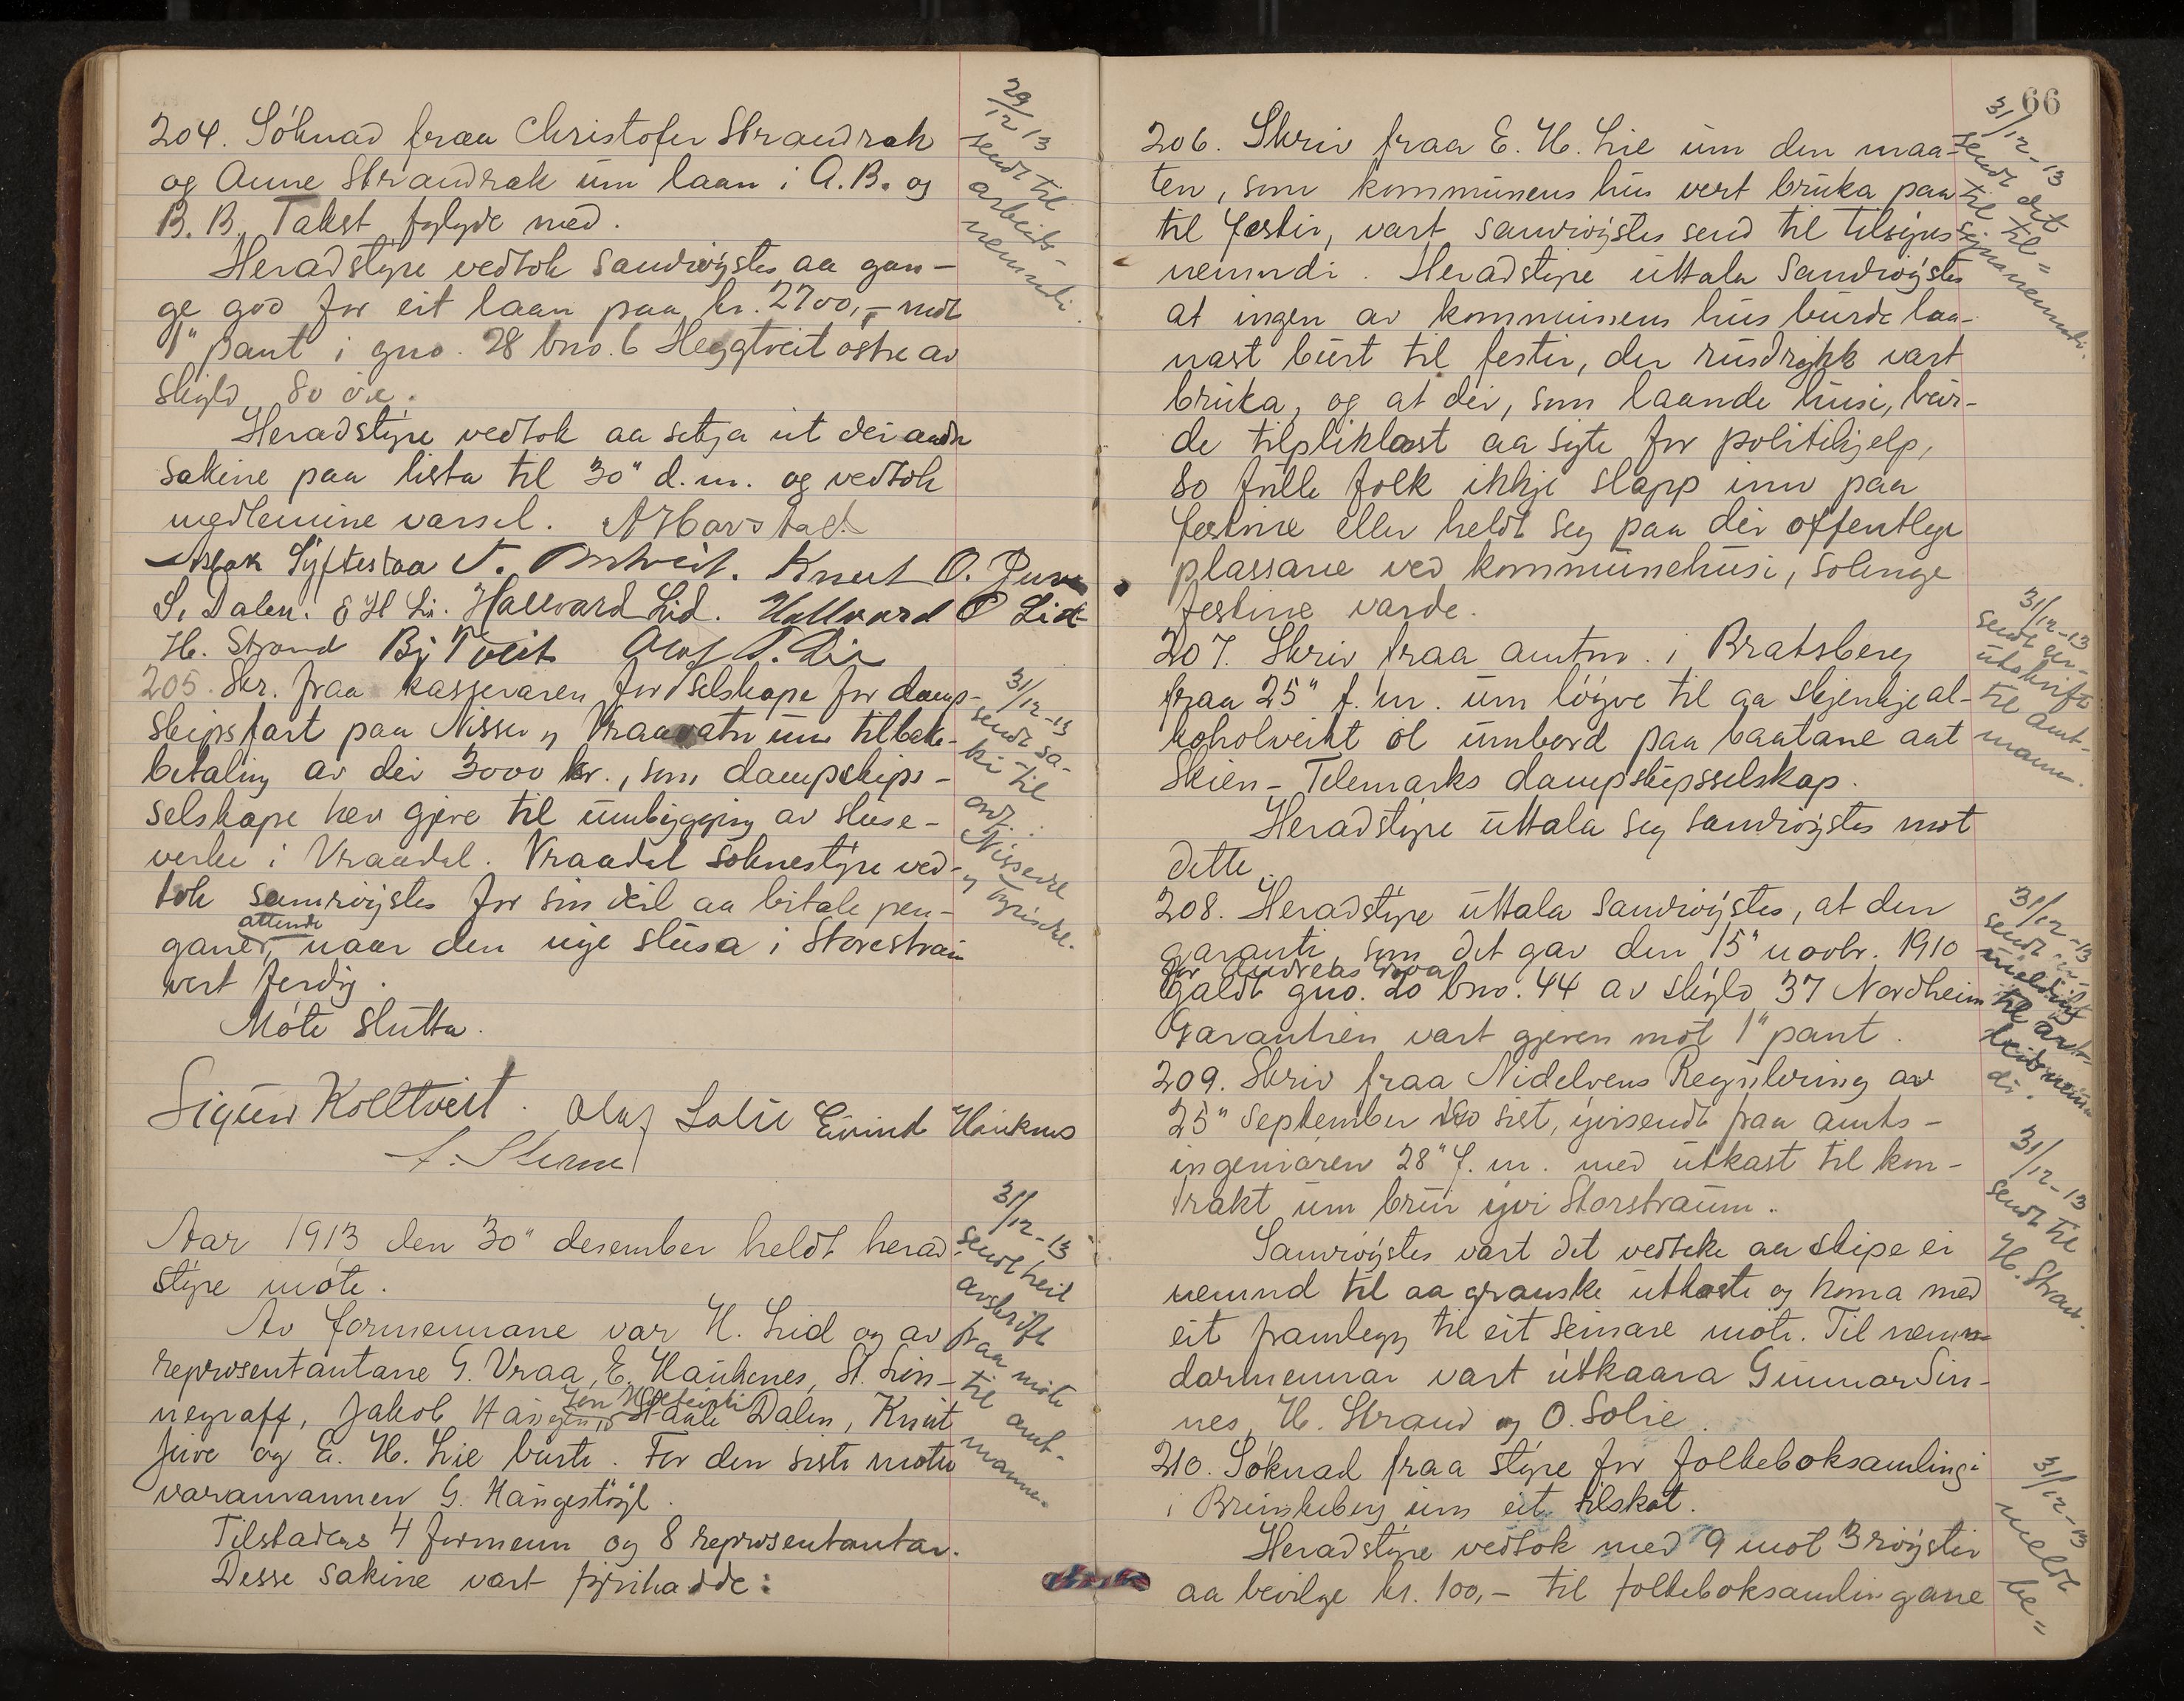 204. Söknad fraa Christofer Strandrak
og Anne Strandrak um laan i A.B. og
B.B. Takst fylgde med.
Heradstyre vedtok samröystes aa gan-
ge god for eit laan paa kr. 2700,- mot
1" pant i gno. 28 bno. 6 Heggtveit östre av
skyld 80 öre.
Heradstyre vedtok aa setja ut dei andre
sakine paa lista til 30" d.m. og vedtok
medlemine varsel. A Havstad.
Aslak Syftestaa Knut O. Juve
S. Dalen. E H Lie. Hallvard Lid. Hallvard O Lid
H. Strand Bj Tveit Olaf T. Lie
205. Skr. fraa kasseraren for selskape for damp-
skipsfart paa Nisser og Vraavatn um tilbake-
betaling av dei 3000 kr., som dampskips-
selskape hev gjeve til umbygging av sluse-
verke i Vraadal. Vraadal soknestyre ved-
tok samröystes for sin deil aa betale pen-
gane attende, naar den nye slusa i Storestraum
vert ferdig.
Möte slutta.
Sigurd Kolltveit. Olaf Solie Eivind Hauknes
29/12 13
sendt til
arbeids-
nemndi.
31/12-13
sendt sa-
ki til
ordf.
Nissedal
og Tyrisdal.
Aar 1913 den 30" desember heldt herad-
styre möte.
Av formennane var H. Lid og av
representantane G. Vraa, E. Haukenes, St. Lin-
negraff, Jakob Haugen, Jon Staale Dalen, Knut
Juve og E. H. Lie burte. For den siste mötte
varamannen G. Haugestöyl.
Tilstades 4 formenn og 8 representantar.
Desse sakine vart fyrihadde:
31/12-13
sendt heil
avskrift
fraa möte
til amt-
mannen.
66
206. Skriv fraa E. H. Lie um den maa-
ten, som kommunens hus vert bruka paa
til festir, vart samröystes send til tilsyns-
nemndi. Heradstyre uttala samröystes
at ingen av kommunens hus burde laa-
nast burt til festir, der rusdrykk vart
bruka, og at dei, som laande husi, bur-
de tilpliktast aa syte for politihjelp,
so fulle folk ikkje slapp inn paa
festine eller heldt seg paa dei offentlege
plassane ved kommunehusi, solenge
festine varde.
31/12-13
sendt det
til til=
synsnemndi.
207. Skriv fraa amtm. i Bratsberg
fraa 25" f.m. um löyve til aa skjenkje al-
koholveikt öl umbord paa baatane aat
Skien-Telemarks dampskipsselskap.
Heradstyre uttala seg samröystes mot
dette.
31/12-13
sendt ser-
utskrift
til amt-
mann.
208. Heradstyre uttala samröystes, at den
garanti, som det gav den 15" novbr. 1910
for Andreas Vraa
galdt gno. 20 bno. 44 av skyld 37 Nordheim
Garantien vart gjeven mot 1" pant.
31/12-13
sendt
melding
til arb-
eidsnemn
di.
209. Skriv fraa Nidelvens Regulering av
25" September sist, yvisendt fraa amts-
ingeniören 28" f.m. med utkast til kon-
trakt um bru yvi Storstraum.
Samröystes vart det vedteke aa skipe ei
nemnd til aa granske utkaste og koma med
eit framlegg til eit seinare möte. Til nemn-
darmennar vart utkaara Gunnar Sin-
nes, H. Strand og O. Solie.
31/12-13
sendt til
H. Strand.
210. Söknad fraa styre for folkeboksamlingi
i Brunkeberg um eit tilskot.
Heradstyre vedtok med 9 mot 3 röystir
aa bevilge kr. 100,- til folkeboksamlingane
31/12-13
meldt
be=